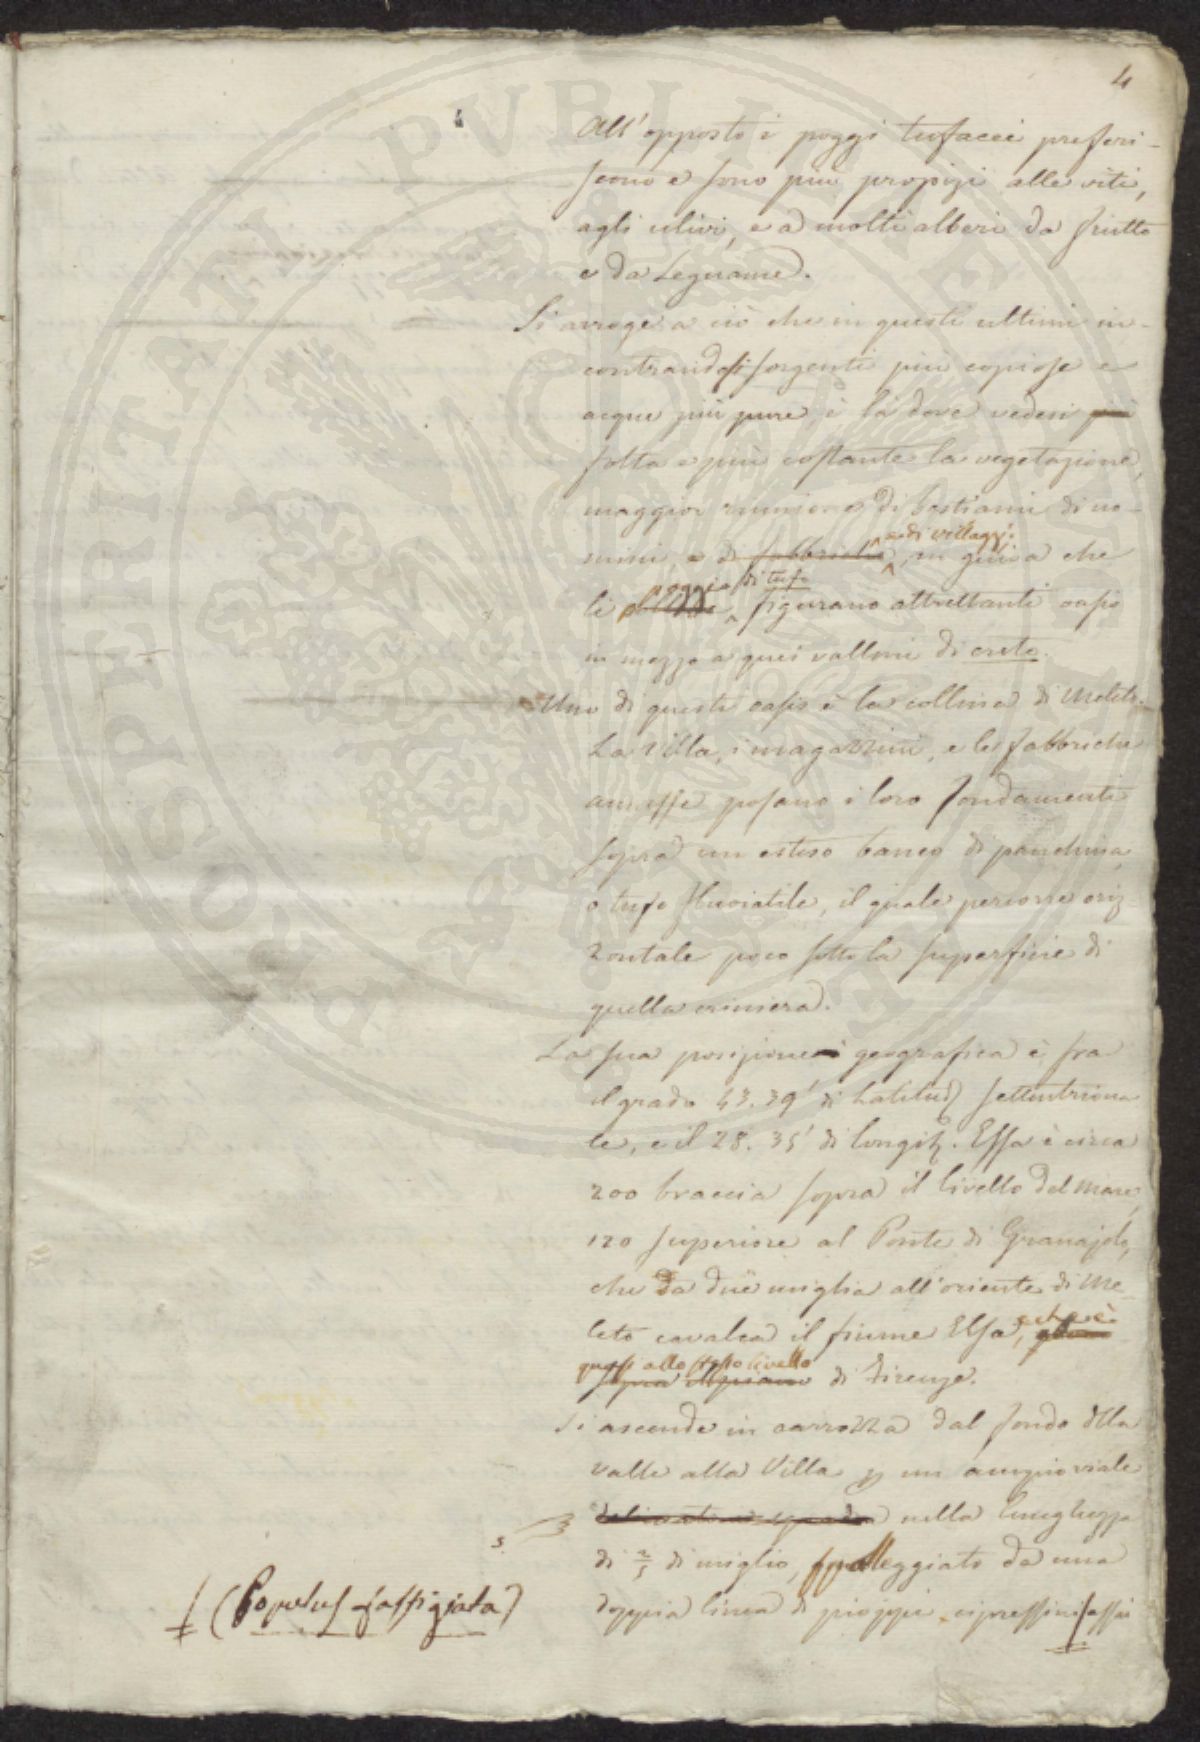 4
All'opposto i poggi tufacei preferi-
scono e sono più propizi alle viti,
agli ulivi, e a molti alberi da frutto
e da Legname.
Si arroge a ciò che in questi ultimi in-
contrandosi sorgenti più copiose e
acque più pure, è là dove vedesi più
folta e più costante la vegetazione,
maggior riunione di bestiami di uo-
e di villaggi
mini, e di fabbriche, in guisa che
poggi di tufo
li figurano altrettanti oasis
in mezzo a quei valloni di creta.
Uno di questi oasis è la collina di Meleto.
La Villa, i magazzini, e le fabbriche
annesse posano i loro fondamenti
sopra un esteso banco di panchina
o tufo fluviatile, il quale percorre oriz-
zontale poco sotto la superficie di
quella criniera.
La sua posizione geografica è fra
il grado 43. 39' di Latitud settentriona
le, e il 28. 35' di longit. Essa è circa
200 braccia sopra il livello del mare,
120 superiore al Ponte di Granajolo,
che da due miglia all'oriente di Me
leto cavalca il fiume Elsa, che è
quasi allo stesso livello
sopra il piano di Firenze.
Si ascende in carrozza dal fondo della
valle alla Villa p un ampio viale
nella lunghezza
di 2/5 di miglio, spalleggiato da una
doppia linea di pioppi cipressini assai
(Populus fastigiata)
PROSPERITATI PUBLICAE AUGENDAE